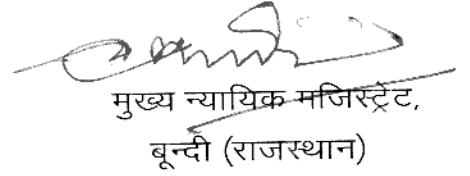 मुख्य न्यायिक मजिस्ट्रेट,
बून्दी (राजस्थान)